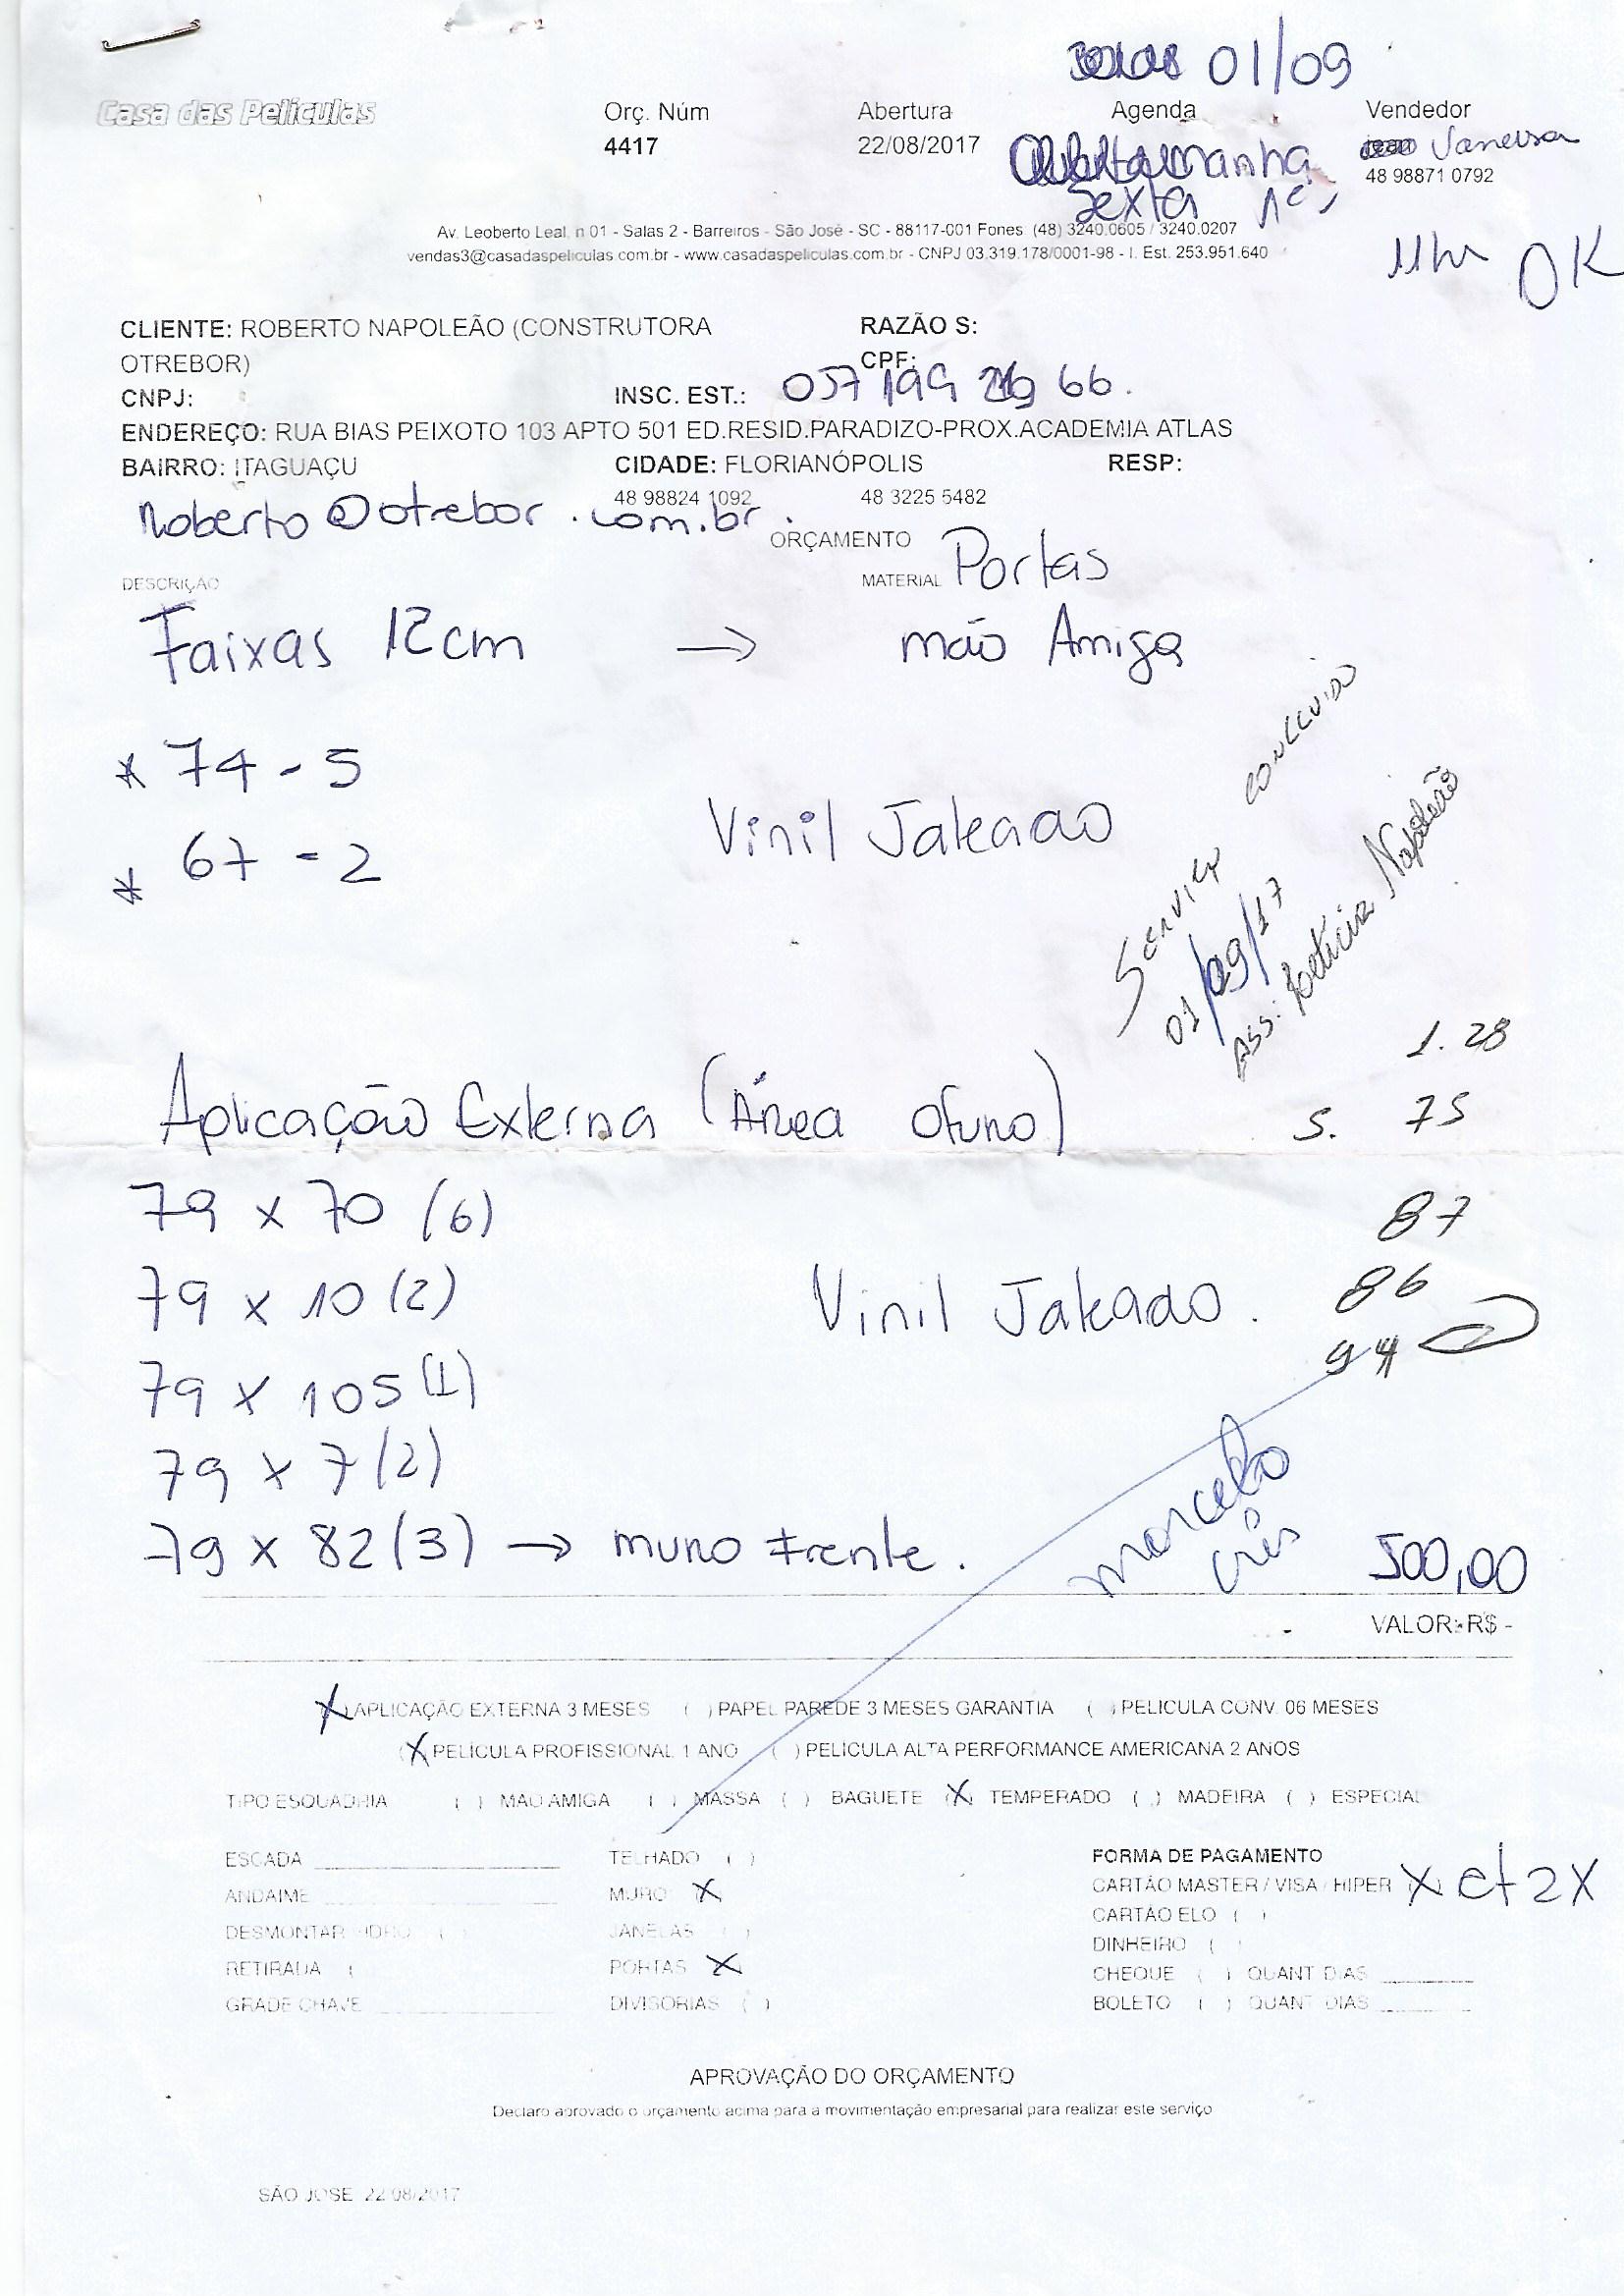 01/09
Casa das Películas
Orç. Núm Abertura Agenda Vendedor
4417 22/08/2017 manhã Vanessa
Sexta 48 98871 0792
Av. Leoberto Leal, n 01 - Salas 2 - Barreiros - São José - SC - 88117-001 Fones (48) 3240.0605 / 3240.0207
vendas3@casadaspeliculas.com.br - www.casadaspeliculas.com.br - CNPJ 03.319.178/0001-98 - I. Est. 253.951.640
11hr OK
CLIENTE: ROBERTO NAPOLEÃO (CONSTRUTORA RAZÃO S:
OTREBOR) CPF:
CNPJ: INSC. EST.: 057 199 66.
ENDEREÇO: RUA BIAS PEIXOTO 103 APTO 501 ED.RESID.PARADIZO-PROX.ACADEMIA ATLAS
BAIRRO: ITAGUAÇU CIDADE: FLORIANÓPOLIS RESP:
48 98824 1092 48 3225 5482
Roberto@otrebor.com.br.
ORÇAMENTO
DESCRIÇÃO MATERIAL Portas
Faixas 12cm → mão Amiga
* 74 - 5
Vinil Jateado
* 67 - 2
Serviço concluido
01/09/17
Ass: Napoleão
1.28
Aplicação Externa (Área ofuro) S. 75
79 x 70 (6) 87
79 x 10 (2) Vinil Jateado. 86
79 x 105 (1) 94
79 x 7 (2)
marcelo
79 x 82 (3) → muro Frente. 500,00
VALOR: R$ -
X APLICAÇÃO EXTERNA 3 MESES ( ) PAPEL PAREDE 3 MESES GARANTIA ( ) PELICULA CONV. 06 MESES
(X PELÍCULA PROFISSIONAL 1 ANO ( ) PELÍCULA ALTA PERFORMANCE AMERICANA 2 ANOS
TIPO ESQUADRIA ( ) MÃO AMIGA ( ) MASSA ( ) BAGUETE (X) TEMPERADO ( ) MADEIRA ( ) ESPECIAL
ESCADA TELHADO ( ) FORMA DE PAGAMENTO
ANDAIME MURO X CARTÃO MASTER / VISA / HIPER X ct 2X
DESMONTAR VIDRO ( ) JANELAS ( ) CARTÃO ELO ( )
DINHEIRO ( )
RETIRADA ( PORTAS X CHEQUE ( ) QUANT DIAS
GRADE CHAVE DIVISORIAS ( ) BOLETO ( ) QUANT DIAS
APROVAÇÃO DO ORÇAMENTO
Declaro aprovado o orçamento acima para a movimentação empresarial para realizar este serviço
SÃO JOSE 22/08/2017